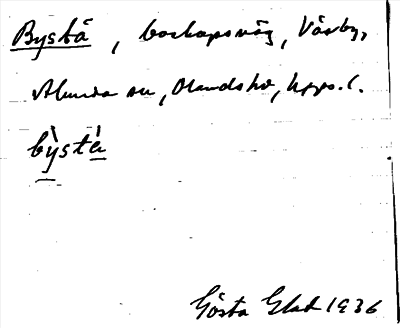 Bystå, boskapsväg, Väsby,
Alunda sn, Olands hd, Upps. l.
bỳstá
Gösta Glad 1936